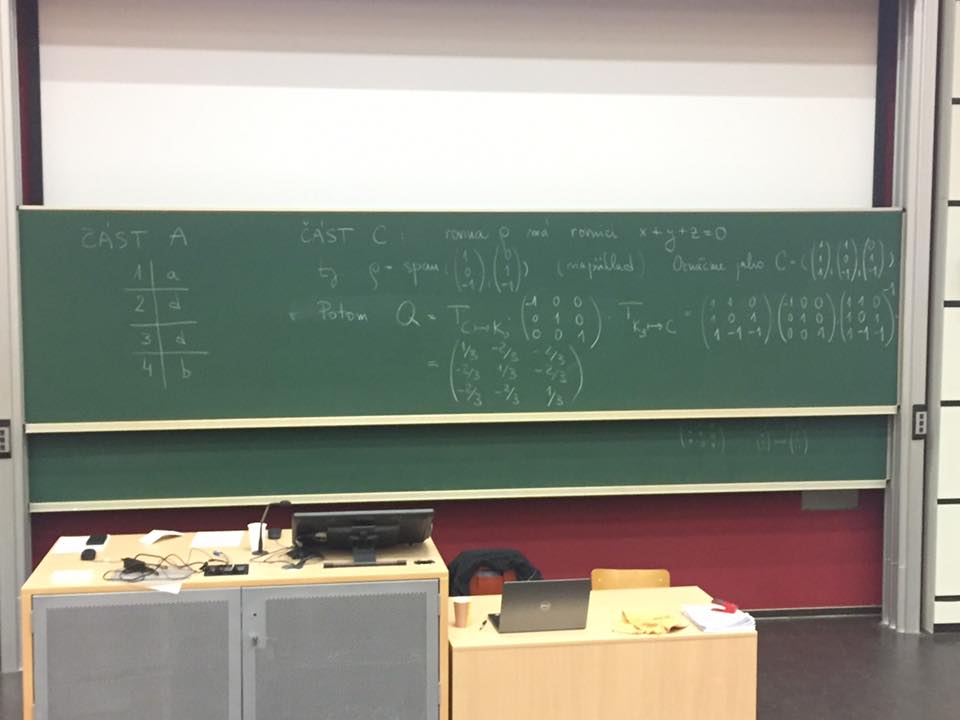 ČÁST A
1 | a
2 | d
3 | d
4 | b
ČÁST C : rovina ρ má rovnici x+y+z=0
tj ρ = span((1 0 -1), (0 1 -1)) (například) Označme jako C = ((1 1 1), (1 0 -1), (0 1 -1))
Potom Q = T_{C↦K₃} (-1 0 0; 0 1 0; 0 0 1) · T_{K₃↦C} = (1 1 0; 1 0 1; 1 -1 -1) (-1 0 0; 0 1 0; 0 0 1) (1 1 0; 1 0 1; 1 -1 -1)⁻¹
= (1/3 -2/3 -2/3; -2/3 1/3 -2/3; -2/3 -2/3 1/3)
DELL